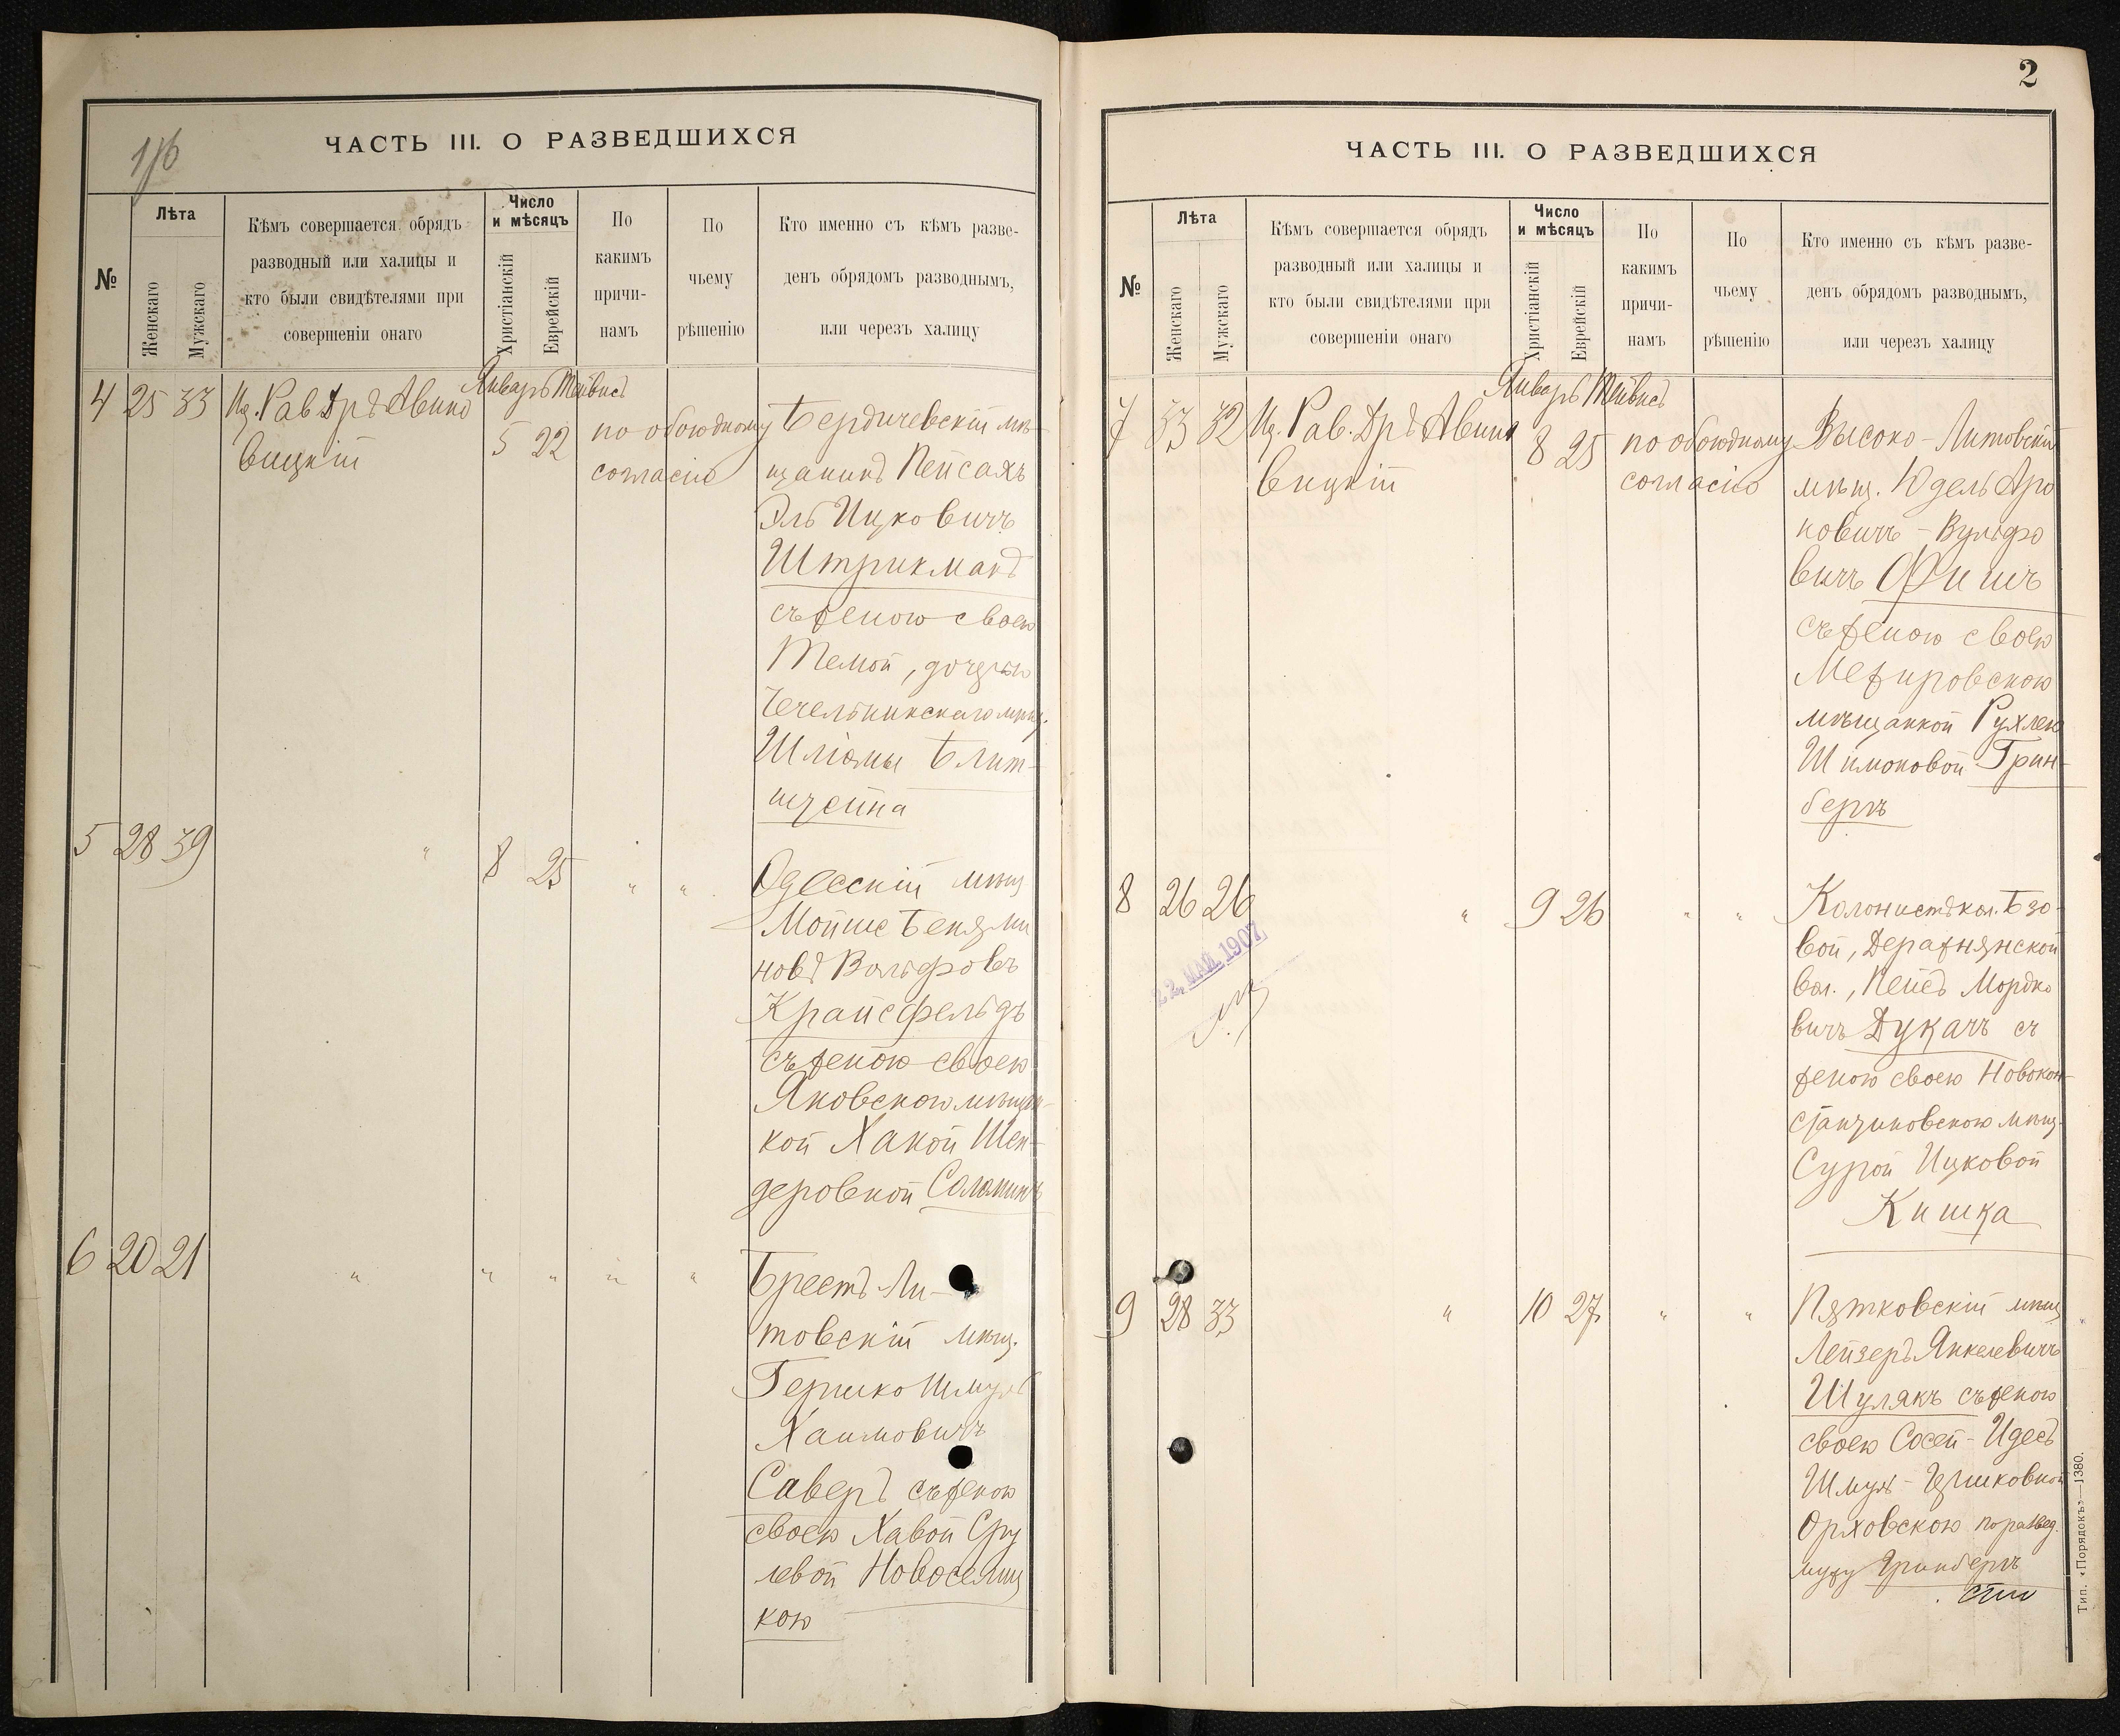 ЧАСТЬ III. О РАЗВЕДШИХСЯ
№
Лѣта
Женскаго
Мужскаго
Кѣмъ совершается обрядъ
разводный или халицы и
кто были свидѣтелями при
совершеніи онаго
Число
и мѣсяцъ
Христіанскій
Еврейскій
По
какимъ
причи-
намъ
По
чьему
рѣшенію
Кто именно съ кѣмъ разве-
денъ обрядомъ разводнымъ,
или черезъ халицу
Январь Тейвисъ
4 25 33
Иц. Рав. Дръ Авино
вицкій
5 22
по обоюдному
согласію
Бердичевскій мѣ-
щанинъ Пейсахъ
Эль Ицковичъ
Штрикманъ
съ женою своею
Темой, дочерью
Чечельникскаго мѣщ.
Шліомы Блит-
штейна
5 28 39
"
8 25
" "
Одесскій мѣщ
Мойше Бенями
новъ Вольфовъ
Крайсфельдъ
съ женою своею
Яновскою мѣщан-
кой Ханой Шен-
деровной
6 20 21
" " " " "
Брестъ-Ли-
товскій мѣщ.
Гершко Шмуль
Хаимовичъ
Саверъ съ женою
своею Хавой Сру
левой Новоселиц
кою
2
ЧАСТЬ III. О РАЗВЕДШИХСЯ
№
Лѣта
Женскаго
Мужскаго
Кѣмъ совершается обрядъ
разводный или халицы и
кто были свидѣтелями при
совершеніи онаго
Число
и мѣсяцъ
Христіанскій
Еврейскій
По
какимъ
причи-
намъ
По
чьему
рѣшенію
Кто именно съ кѣмъ разве-
денъ обрядомъ разводнымъ,
или черезъ халицу
Январь Тейвисъ
7 33 32
Иц. Рав. Дръ Авино
вицкій
8 25
по обоюдному
согласію
Высоко-Литовскій
мѣщ. Юдель Аро
новичъ-Вульфо
вичъ Фишъ
съ женою своею
Межировскою
мѣщанкой Рухлею
Шимоновой Грин-
бергъ
8 26 26
22. МАЙ. 1907
"
9 26
" "
Колонистъ кол. Взо-
вой, Деражнянской
вол., Пейсъ Мордко
вичъ Дукачъ съ
женою своею Новокон-
стантиновскою мѣщ.
Сурой Ицковой
Кишка
9 28 33
"
10 27
" "
Пятковскій мѣщ
Лейзеръ Янкелевичъ
Шулякъ съ женою
своею Сосей-Идесъ
Шмуль-Гершковной
Орховскою по развед.
мужу Гринбергъ
Тип. «Порядокъ»—1380.